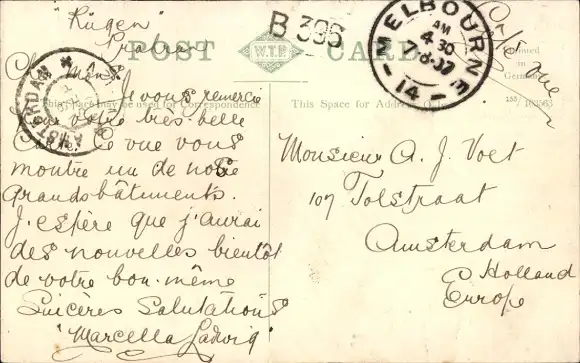 "Rügen"
Prahran
POST CARD
W.T.P.
B 396
MELBOURNE
AM
4 30
7·8·07
14
Carte vue
Printed in
Germany
155/103563
AMSTERDAM
This Space may be used for Correspondence
This Space for Address Only
Je vous remercie
sur votre très belle
Carte. Ce vue vous
montre un de nos
grands bâtiments.
J'espère que j'aurai
des nouvelles bientôt
de votre bon-même
Sincères Salutations
"Marcella Ladwig"
Monsieur A. J. Voet
107 Tolstraat
Amsterdam
Holland
Europe